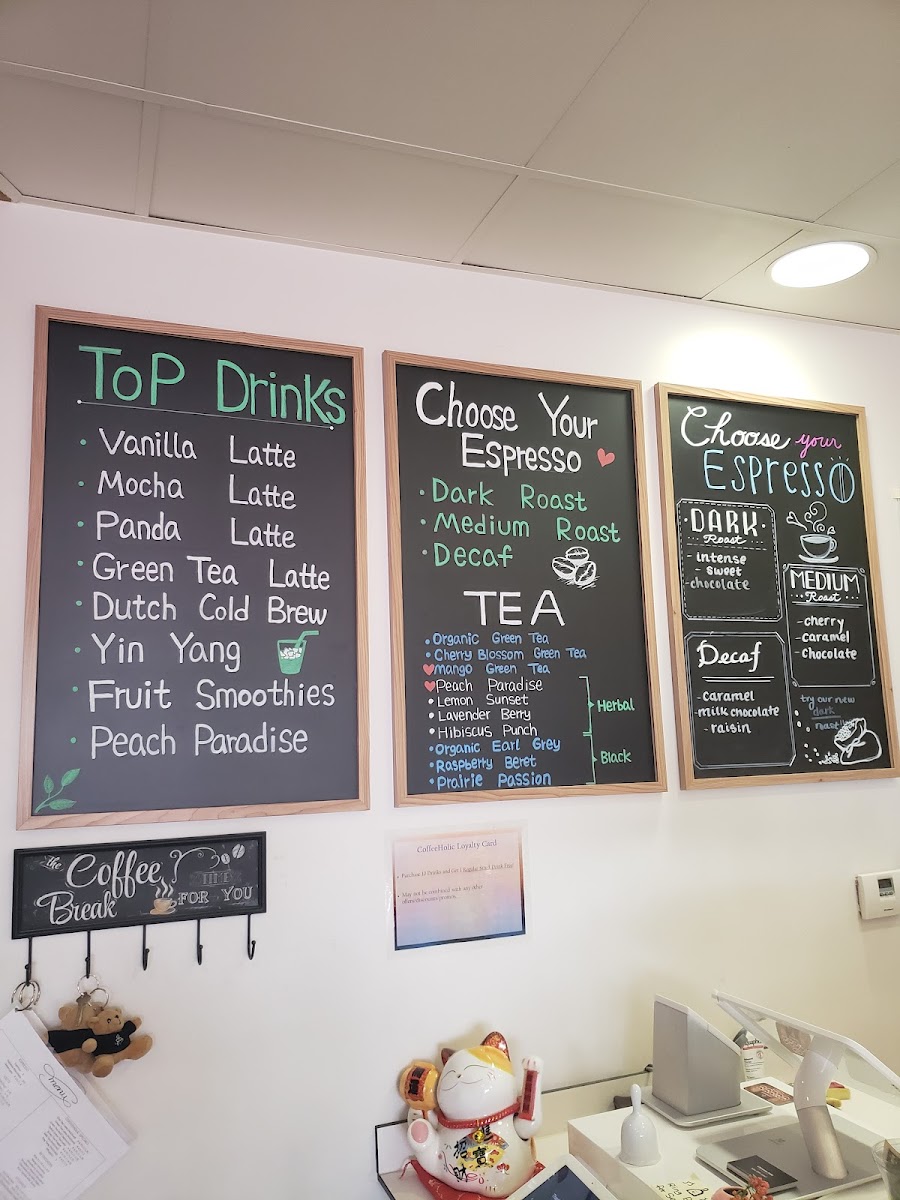 ToP DrinKs
Vanilla Latte
Mocha Latte
Panda Latte
Green Tea Latte
Dutch Cold Brew
Yin Yang
Fruit Smoothies
Peach Paradise
Choose Your
Espresso
Dark Roast
Medium Roast
Decaf
TEA
Organic Green Tea
Cherry Blossom Green Tea
Mango Green Tea
Peach Paradise
Lemon Sunset
Lavender Berry
Hibiscus Punch
Organic Earl Grey
Raspberry Beret
Prairie Passion
Herbal
Black
Choose your
Espresso
DARK
Roast
- intense
- sweet
- chocolate
MEDIUM
Roast
- cherry
- caramel
- chocolate
Decaf
- caramel
- milk chocolate
- raisin
try our new
dark
roast
The
Coffee
Break
TIME
FOR YOU
CoffeeHolic Loyalty Card
Purchase 10 Drinks and Get 1 Regular Small Drink Free
May not be combined with any other
offers/discounts/promos.
menu
招财
宝